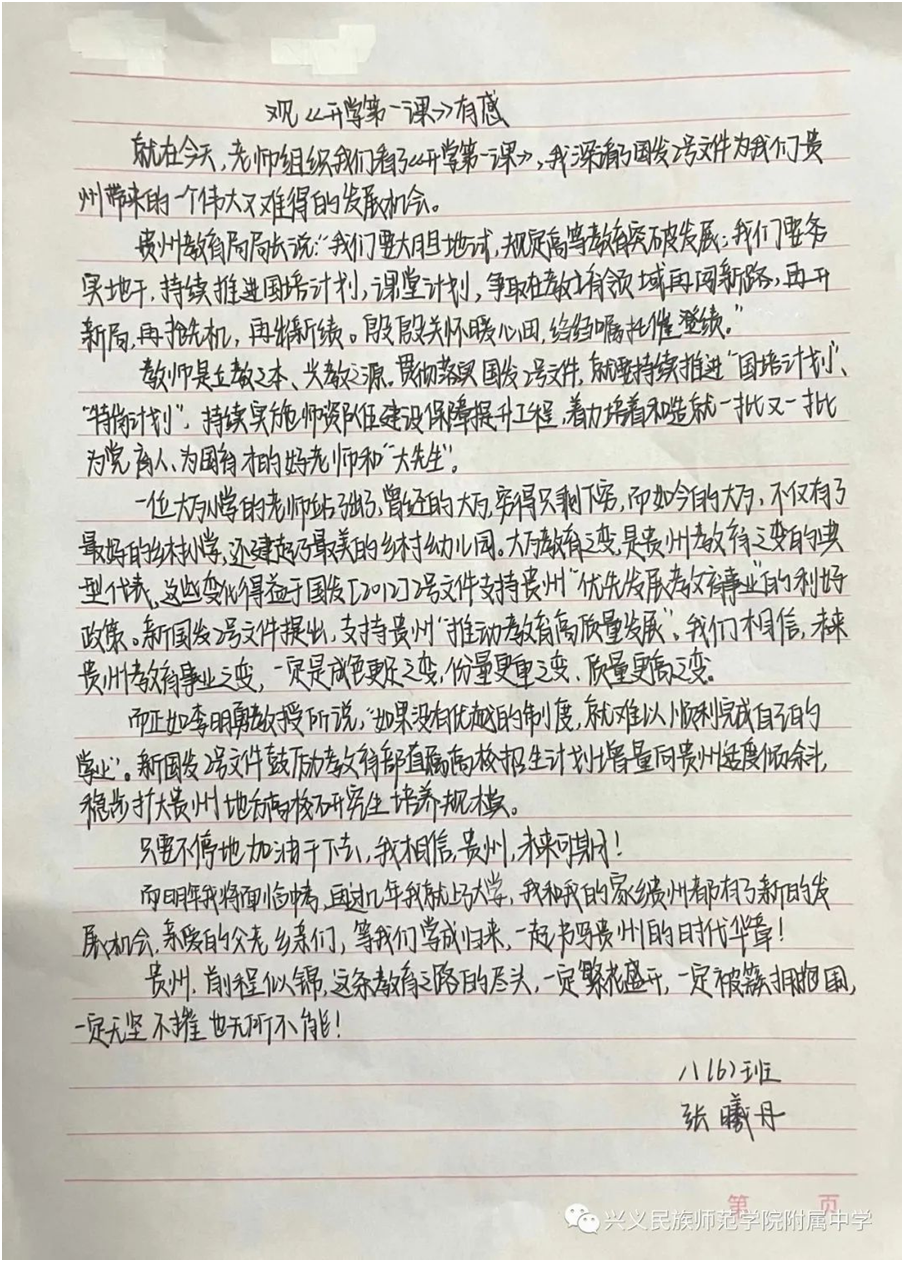 观《开学第一课》有感
就在今天,老师组织我们看了《开学第一课》,我深看了国发2号文件为我们贵
州带来的一个伟大又难得的发展机会。
贵州教育局局长说:“我们要大胆地试,规定高等教育突破发展;我们要务
实地干,持续推进国培计划,课堂计划,争取在教育领域再闯新路,再开
新局,再抢先机,再出新绩。段段关怀暖心田,给给嘱托催登绩。”
教师是立教之本、兴教之源。贯彻落实国发2号文件,就要持续推进“国培计划”、
“特岗计划”,持续实施师资队伍建设保障提升工程,着力培养和造就一批又一批
为党育人、为国育才的好老师和“大先生”。
一位大方小学的老师站了出了,曾经的大方,穷得只剩下穷,而如今的大方,不仅有了
最好的乡村小学,还建起了最美的乡村幼儿园。大方教育之变,是贵州教育之变的典
型代表,这些变化得益于国发[2012]2号文件支持贵州“优先发展教育事业”的利好
政策。新国发2号文件提出,支持贵州“推动教育高质量发展”。我们相信,未来
贵州教育事业之变,一定是成色更足之变,份量更重之变、质量更高之变。
而正如李明勇教授所说,“如果没有优越的制度,就难以顺利完成自己的
学业”。新国发2号文件鼓励教育部直属高校招生计划增量向贵州适度倾斜,
稳步扩大贵州地方高校研究生培养规模。
只要不停地加油干下去,我相信,贵州,未来可期!
而明年我将面临中考,再过几年我就上大学,我和我的家乡贵州都有了新的发
展机会,亲爱的父老乡亲们,等我们学成归来,一起书写贵州的时代华章!
贵州,前程似锦,这条教育之路的尽头,一定繁花盛开,一定被簇拥抱围,
一定无坚不摧也无所不能!
八(6)班
张曦丹
第 页
兴义民族师范学院附属中学